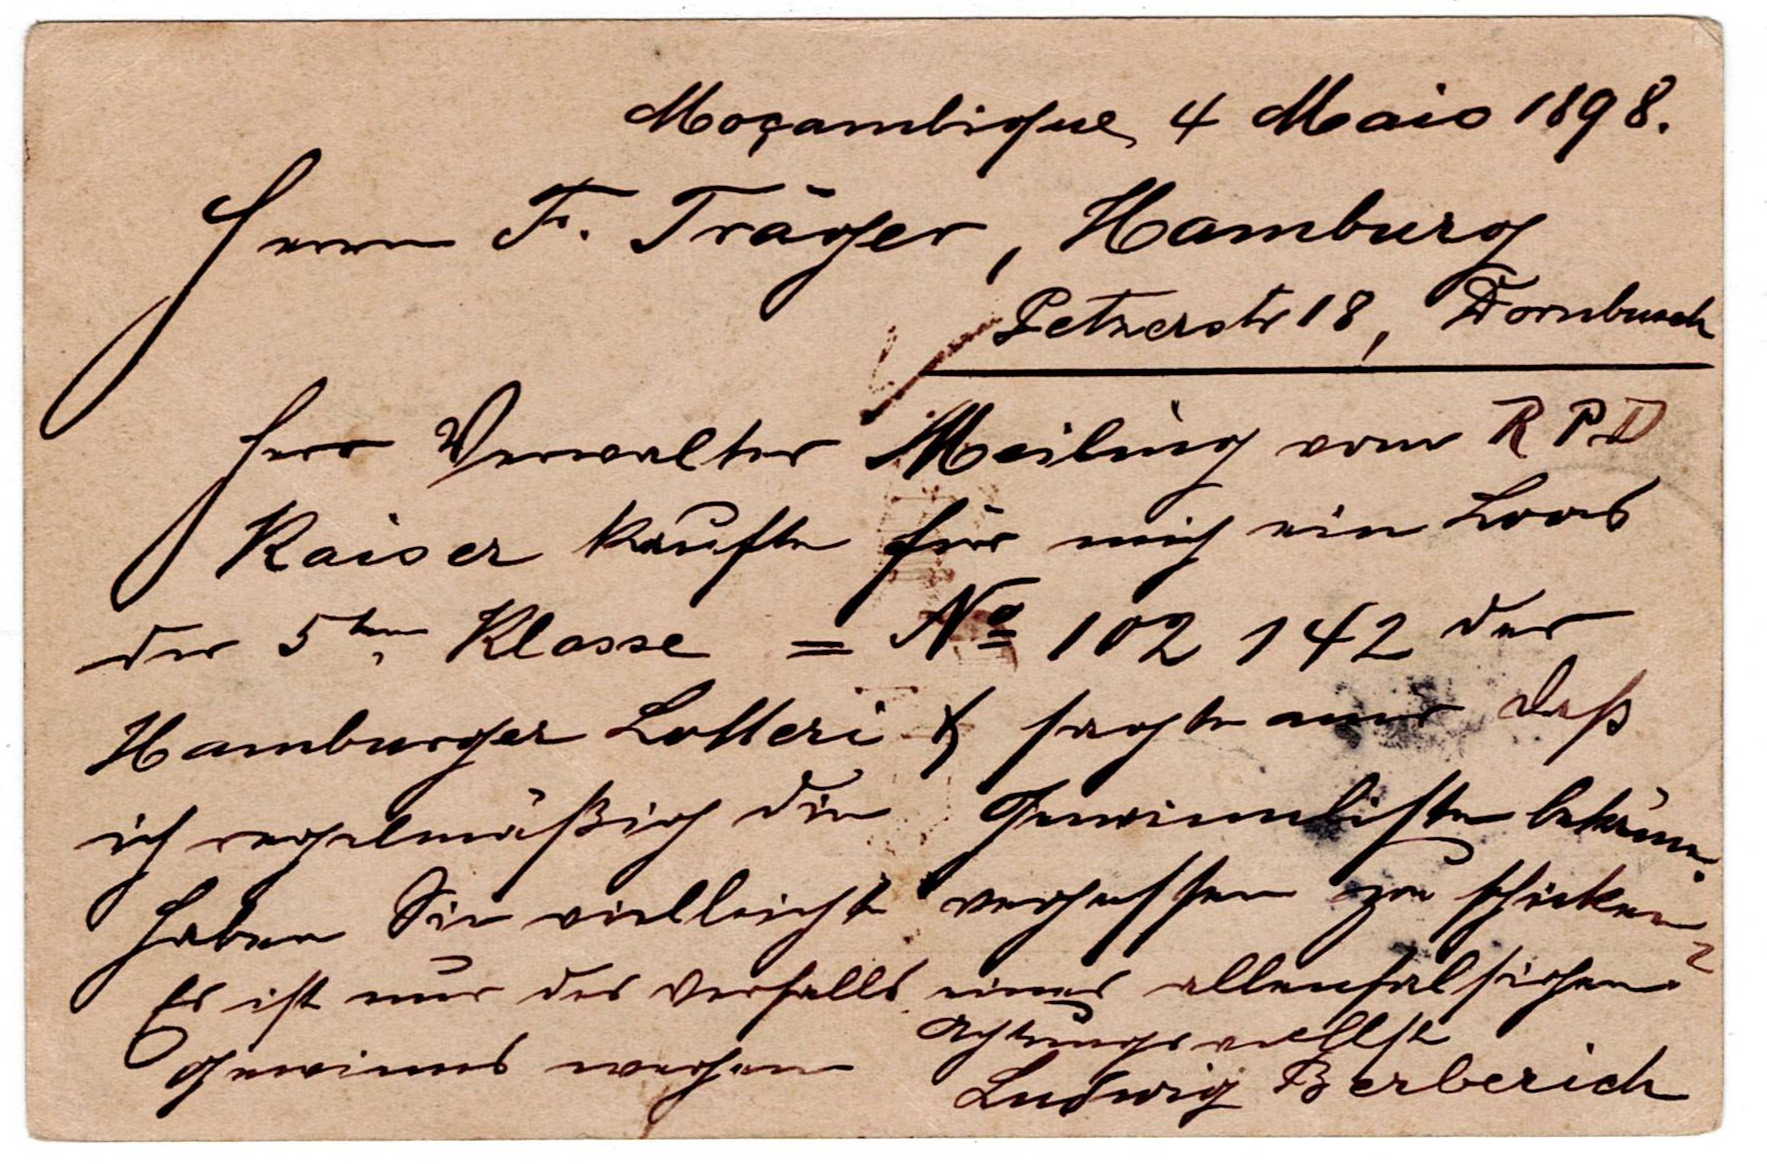 Moçambique, 4 Maio 1898.
Herrn F. Träger, Hamburg
18, Dornbusch
Herr Verwalter Meiling vom R P D
Kaiser kaufte für mich ein Loos
der 5ten Klasse = No 102 142 der
Hamburger Lotteri & sagte mir daß
ich regelmäßig die Gewinnliste bekäme.
Haben Sie vielleicht vergessen zu schicken?
Es ist nur des Verfalls eines allenfalsigen
Gewinnes wegen
Achtungsvollst
Ludwig Berberich